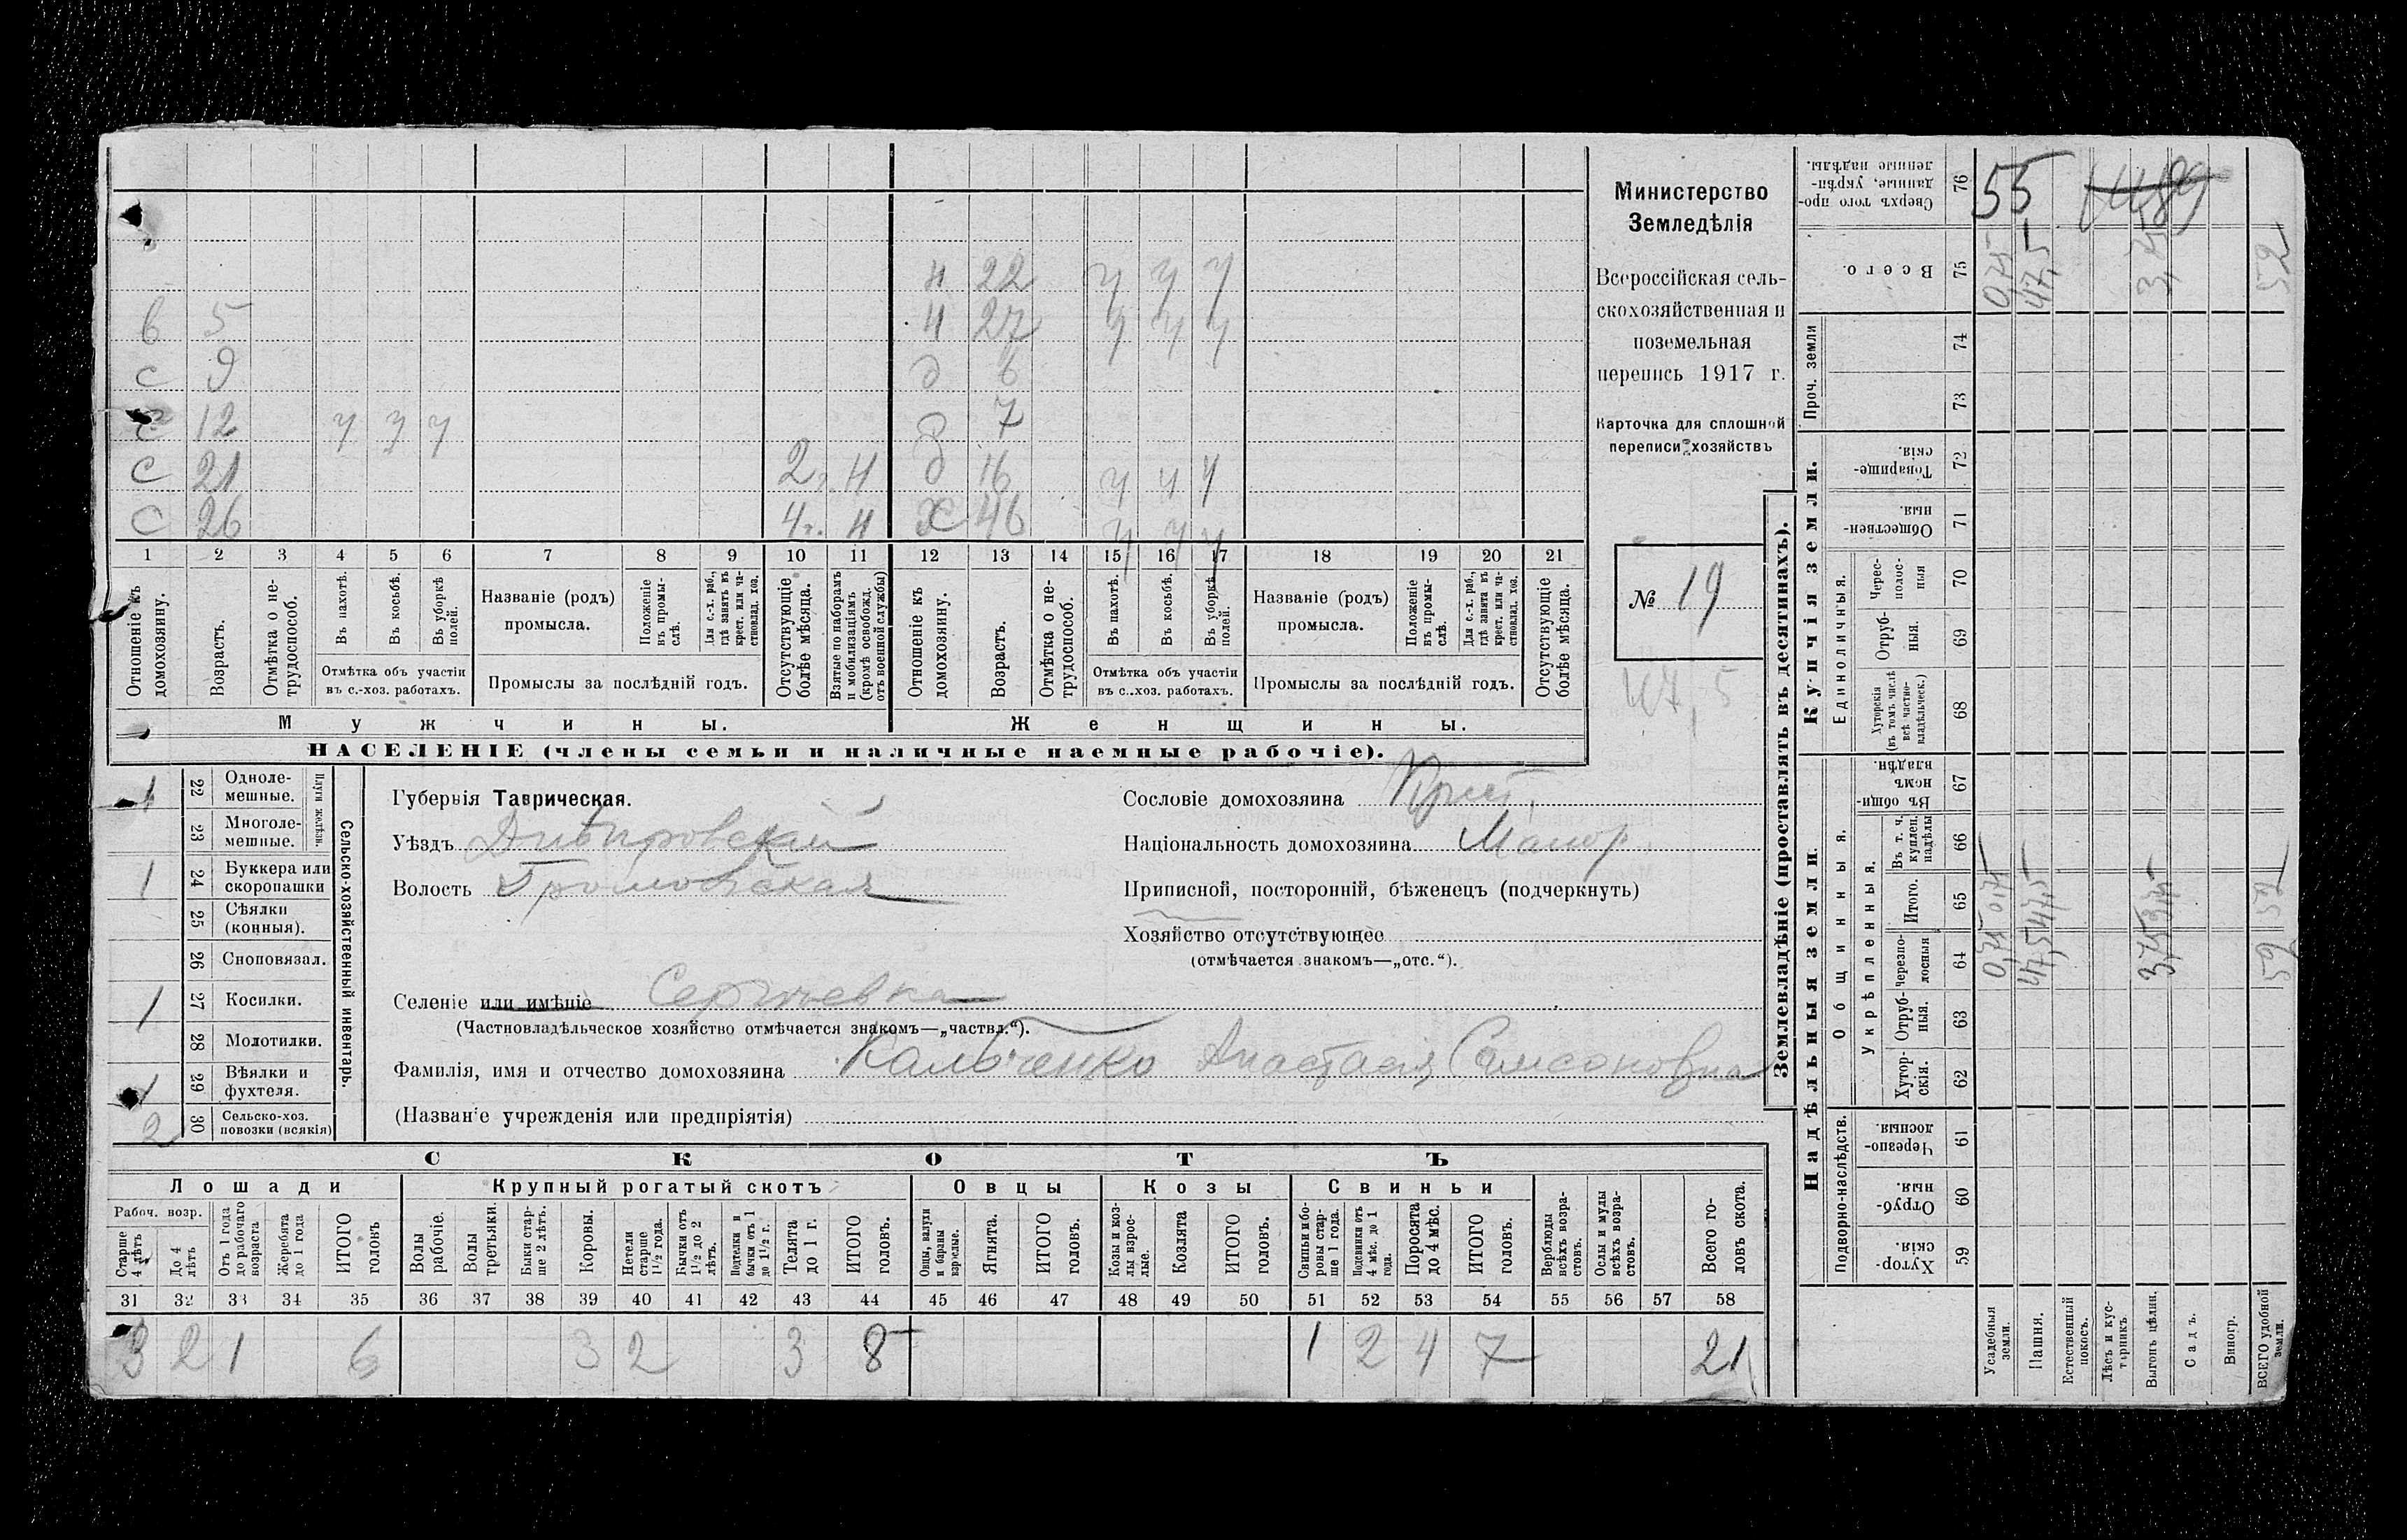 Министерство
Земледѣлія
Всероссійская сель-
скохозяйственная и
поземельная
перепись 1917 г.
Карточка для сплошной
переписи хозяйствъ
№ 19
47,5
н 22 у у у
в 5 н 27 у у у
с 9 д 6
с 12 у у у д 7
с 21 2 г. н д 16 у у у
с 26 4 г. н х 46 у у у
1 2 3 4 5 6 7 8 9 10 11 12 13 14 15 16 17 18 19 20 21
Отношеніе къ домохозяину.
Возрастъ.
Отмѣтка о не-трудоспособ.
Въ пахотѣ.
Въ косьбѣ.
Въ уборкѣ полей.
Отмѣтка объ участіи
въ с.-хоз. работахъ.
Названіе (родъ)
промысла.
Положеніе въ промы-слѣ.
Для с.-х. раб., гдѣ занятъ въ крест. или ча-стновлад. хоз.
Промыслы за послѣдній годъ.
Отсутствующіе болѣе мѣсяца.
Взятые по наборамъ и мобилизаціямъ (кромѣ освобожд. отъ военной службы)
Отношеніе къ домохозяину.
Возрастъ.
Отмѣтка о не-трудоспособ.
Въ пахотѣ.
Въ косьбѣ.
Въ уборкѣ полей.
Отмѣтка объ участіи
въ с.-хоз. работахъ.
Названіе (родъ)
промысла.
Положеніе въ промы-слѣ.
Для с.-х. раб., гдѣ занята въ крест. или ча-стновлад. хоз.
Промыслы за послѣдній годъ.
Отсутствующіе болѣе мѣсяца.
Мужчины. Женщины.
НАСЕЛЕНІЕ (члены семьи и наличные наемные рабочіе).
Сельско-хозяйственный инвентарь.
Плуги желѣзн.
1 22 Однолемешные.
23 Многолемешные.
1 24 Буккера или скоропашки
25 Сѣялки (конныя).
26 Сноповязал.
1 27 Косилки.
28 Молотилки.
1 29 Вѣялки и фухтеля.
2 30 Сельско-хоз. повозки (всякія)
Губернія Таврическая.
Уѣздъ Днѣпровскій
Волость Громовская
Сословіе домохозяина Крест.
Національность домохозяина Малор.
Приписной, посторонній, бѣженецъ (подчеркнуть)
Хозяйство отсутствующее
(отмѣчается знакомъ—„отс.“).
Селеніе или имѣніе Сергѣевка
(Частновладѣльческое хозяйство отмѣчается знакомъ—„частвл.“).
Фамилія, имя и отчество домохозяина Кальченко Анастасія Самсоновна
(Названіе учрежденія или предпріятія)
СКОТЪ
Лошади Крупный рогатый скотъ Овцы Козы Свиньи
Рабоч. возр.
Старше 4 лѣтъ
До 4 лѣтъ
Отъ 1 года до рабочаго возраста
Жеребята до 1 года
ИТОГО головъ
Волы рабочіе.
Волы третьяки.
Быки стар-ше 2 лѣтъ.
Коровы.
Нетели старше 1½ года.
Бычки отъ 1½ до 2 лѣтъ.
Подтелки и бычки отъ 1 до 1½ г.
Телята до 1 г.
ИТОГО головъ.
Овцы, валухи и бараны взрослые.
Ягнята.
ИТОГО головъ.
Козы и коз-лы взрос-лые.
Козлята
ИТОГО головъ.
Свиньи и бо-ровы стар-ше 1 года.
Подсвинки отъ 4 мѣс. до 1 года.
Поросята до 4 мѣс.
ИТОГО головъ.
Верблюды всѣхъ возра-стовъ.
Ослы и мулы всѣхъ возра-стовъ.
Всего го-ловъ скота.
31 32 33 34 35 36 37 38 39 40 41 42 43 44 45 46 47 48 49 50 51 52 53 54 55 56 57 58
3 2 1 6 3 2 3 8 1 2 4 7 21
Землевладѣніе (проставлять въ десятинахъ).
Надѣльныя земли
Купчія земли.
Проч. земли
Подворно-наслѣдств.
Общинныя.
Укрѣпленныя.
Единоличныя.
Сверхъ того про-данные, укрѣп-ленные надѣлы. 76 55
Всего. 75 0,75 47,5 3,75 52
74
73
Товарище-скія. 72
Обществен-ныя. 71
Черес-полос-ныя 70
Отруб-ныя. 69
Хуторскія (въ томъ числѣ всѣ частно-владѣльческ.) 68
Въ общи-номъ владѣн. 67
Въ т. ч. куплен. надѣлы 66
Итого. 65 0,75 47,5 3,75 52
Черезпо-лосныя 64 0,75 47,5 3,75 52
Отруб-ныя. 63
Хутор-скія. 62
Черезпо-лосныя. 61
Отруб-ныя. 60
Хутор-скія. 59
Усадебныя земли.
Пашня.
Естественный покосъ.
Лѣсъ и кус-тарникъ.
Выгонъ цѣлин.
Садъ.
Виногр.
ВСЕГО удобной земли.